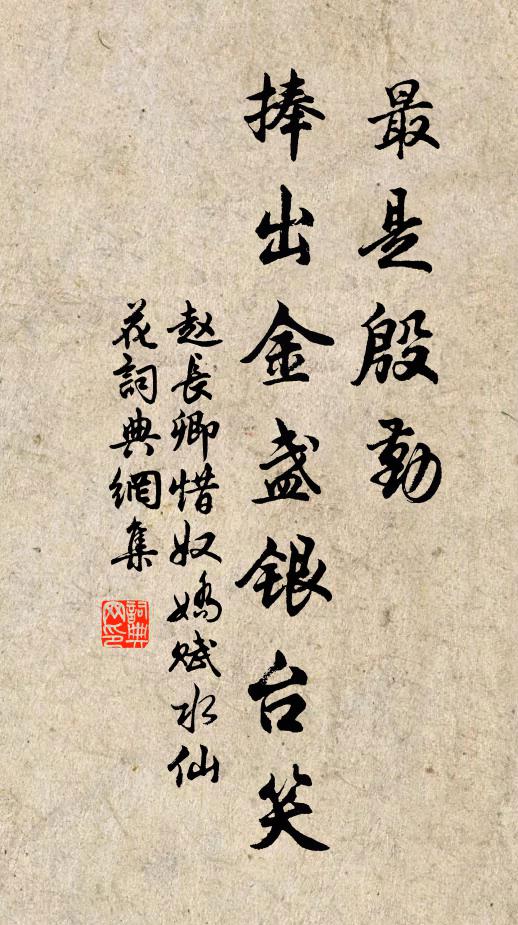 最是殷勤
捧出金盏银台笑
赵長卿惜奴娇赋水仙
花詞典網集
詞典
网印